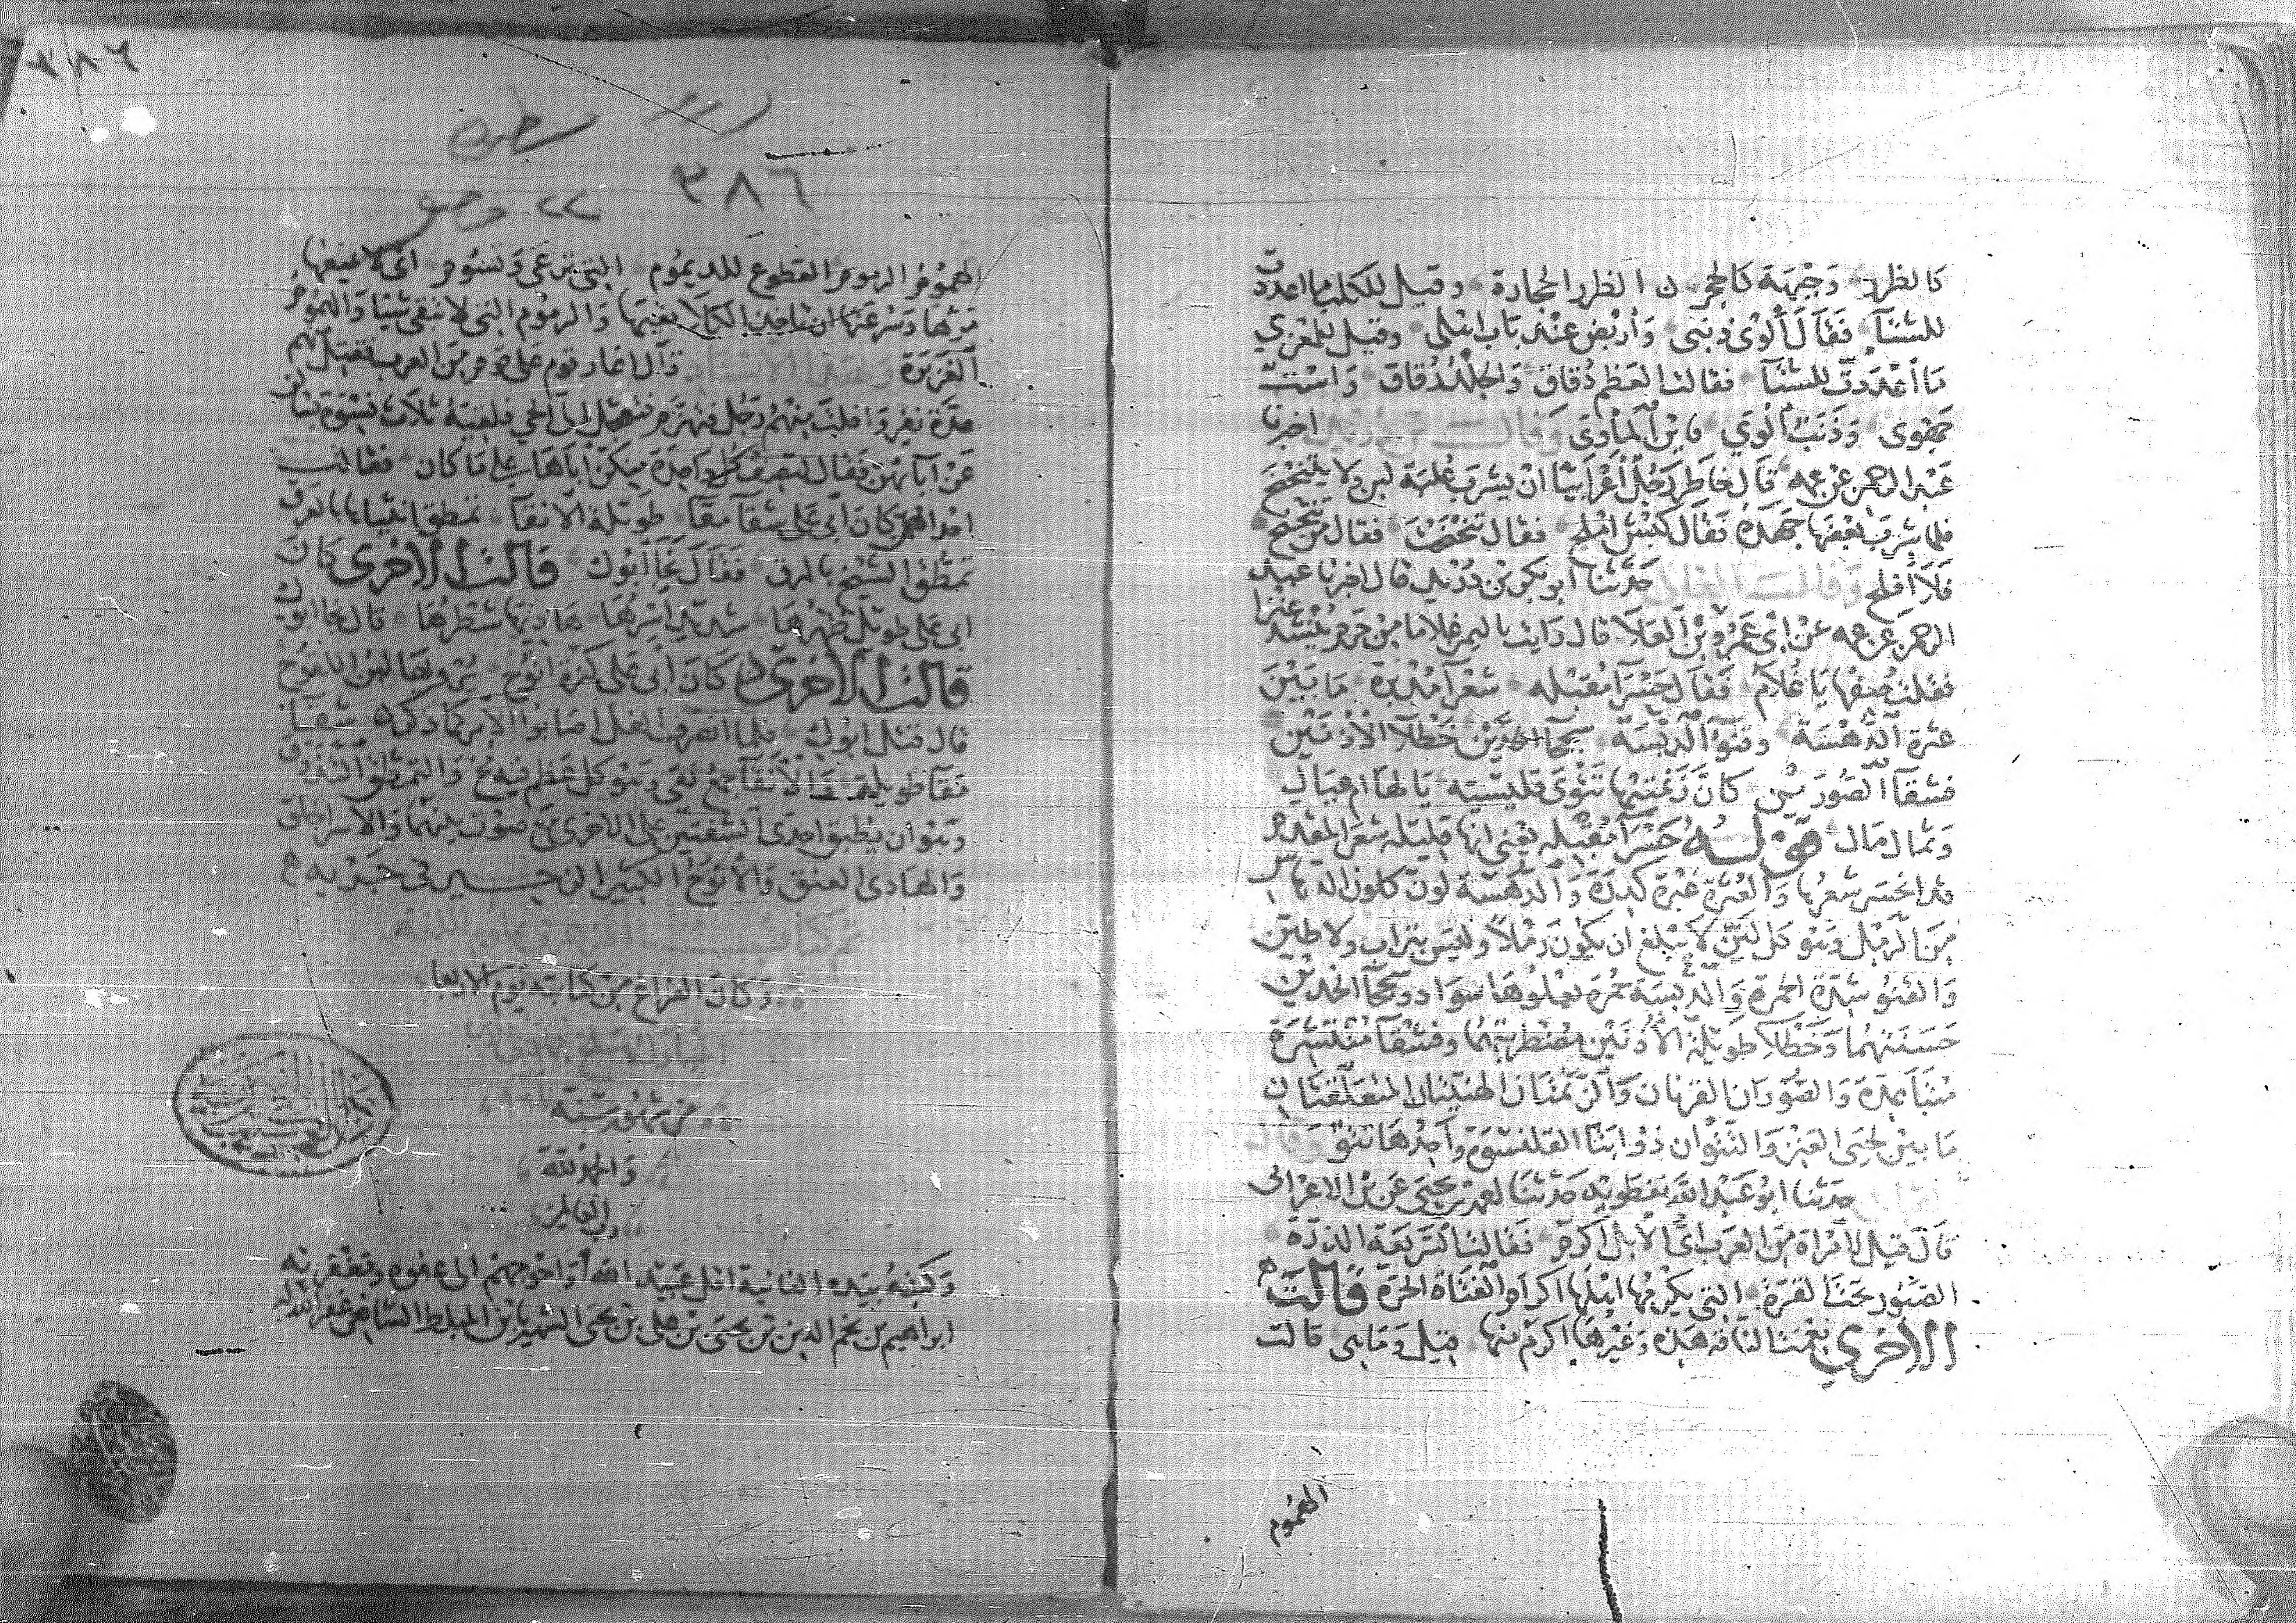 كالظرر وجبهة كالحجر ن الظرر الحجارة وقيل للكلب ما اعددت
للشتآ فقال ألوي ذنبي وأربض عند باب اهلي وقيل للمعزي
ما أعددت للشتآ فقالت العظم دقاق والجلد رقاق واست
جهوى وذنب ألوي فاين المأوى وقالت اخبرنا
عبد الرحمن عن عمه قال خاطر رجل أعرابيا ان يشرب علبة لبن ولا يتنحنح
فلما شرب بعضها جهده فقال كبش املح فقال تنحنحت فقال من تنحنح
فلا أفلح حدثنا ابو بكر بن دريد قال اخبرنا عبد
الرحمن عن عمه عن ابي عمرو بن العلآ قال رايت باليمن غلاما من جرم ينشد عنزا
فقلت صفها يا غلام فقال حسرآ مقبله شعرآ مدبرة ما بين
عثرة الدهسة وقنو الدبسة سجحآ الخدين خطلآ الأذنين
فشقآ الصورين كأن زنمتيها تتوى قلنسية يا لها ام عيال
وثمال مال قوله حسرآ مقبله يعني انها قليله شعر المقدم
قد انحسر شعرها والعثرة غبرة كدرة والدهسة لون كلون الدهاس
من الرمل وهو كل لين لا يبلغ ان يكون رملا وليس بتراب ولا طين
والقنو شدة الحمرة والدبسة حمرة يعلوها سواد وسجحآ الخدين
حسنتهما وخطلآ طويلة الأذنين مضطربتهما وفشقآ منتشرة
متباعدة والصوران القرنان والزنمتان الهنيتان المتعلقتان
ما بين لحيي العنز والتتوان ذؤابتا القلنسوة واحدها تتو وقال
حدثنا ابو عبد الله نفطويه حدثنا احمد بن يحيى عن بن الاعرابي
قال قيل لامرأة من العرب اي الأبل اكرم فقالت السريعة الدرة
الصبور تحت القرة التي يكرمها اهلها اكرام الفتاة الحرة قالت
الاخري نعمت الناقة هذه وغيرها اكرم منها قيل وما هي قالت
الهموم
٣٨٦
٣٨٦
٢٢
الهموم الرموم القطوع للديموم التي ترعى وتسوم اي لا يمنعها
مرها وسرعتها ان تاخذ الكلآ بفيها والرموم التي لا تبقي شيئا والهموم
الغزيرة قال اغار قوم على قوم من العرب فقتل منهم
عدة نفر وافلت منهم رجل فتعجل الي الحي فلقيه ثلاث نسوة يسألن
عن آبآئهن فقال لتصف كل واحدة منكن اباها على ما كان فقالت
احداهن كان ابي على شقآ مقآ طويلة الانقآ تمطق انثياها بالعرق
تمطق الشيخ بالمرق فقال نجا ابوك قالت الاخرى كان
ابي على طويل ظهرها شديد اسرها هاديها شطرها قال نجا ابوك
قالت الاخرى كان ابي على كزة انوح يرويها لبن اللقوح
قال قتل ابوك فلما انصرف الفل اصابوا الامر كما ذكر شقآ
مقآ طويلة والأنقآ جمع نقي وهو كل عظم فيه مخ والتمطق التذوق
وهو ان يطبق احدى الشفتين على الاخرى مع صوت بينهما والاسر الخلق
والهادى العنق والأنوح الكثير الزحير في جريه
تم كتاب
وكان الفراغ من كتابته يوم الاربعا
من شهور سنة
والحمد لله
رب العالمين
وكتبه بيده الفانية اقل عبيد الله وأحوجهم الى عفوه ومغفرته
ابراهيم بن نجم الدين بن يحيى بن علي بن يحيى الشهير بابن المبلط الشافعي غفر الله له